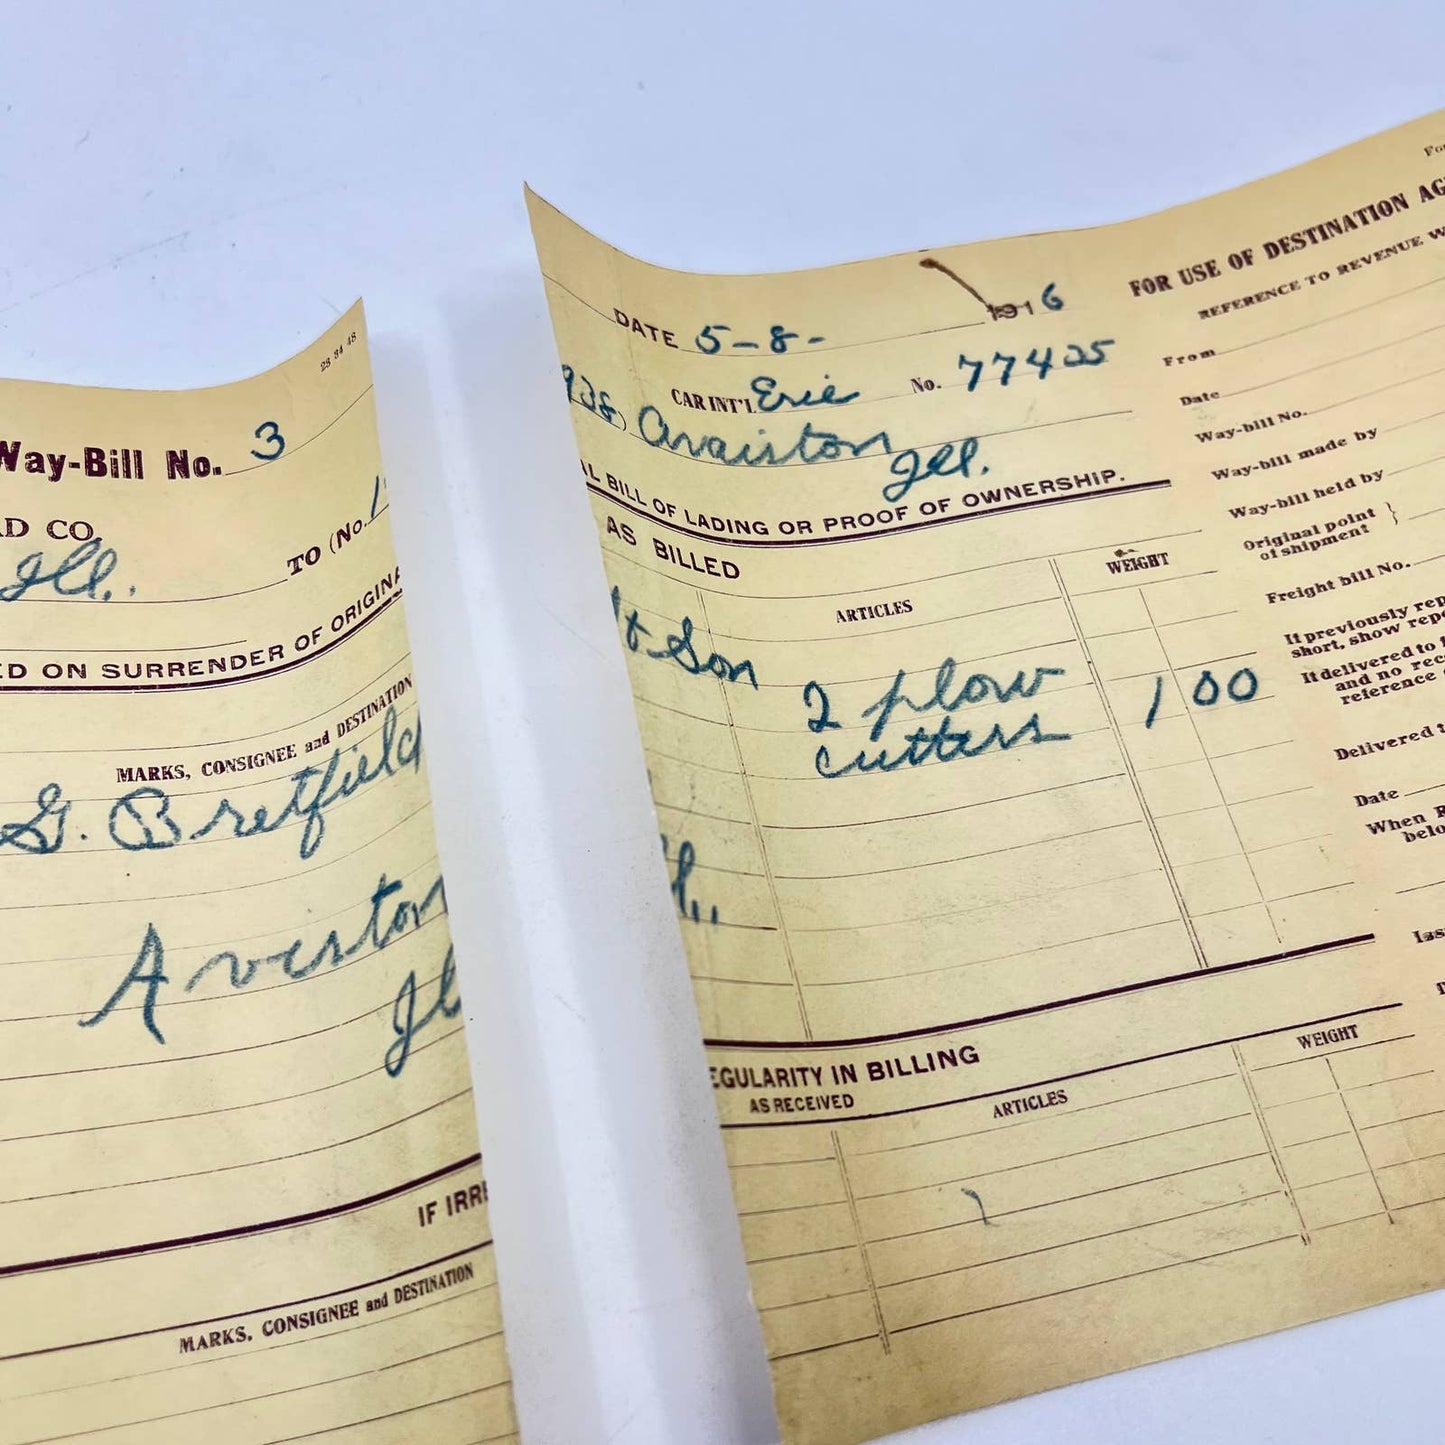 28 34 48
Way-Bill No. 3
AD CO.
Ill.
TO (No. 1
ED ON SURRENDER OF ORIGINA
MARKS, CONSIGNEE and DESTINATION
G. Bretfield
Aveston
Il
IF IRRE
MARKS, CONSIGNEE and DESTINATION
DATE 5-8- 1916
CAR INT'L Erie No. 77425
938) Avaiston
Ill.
AL BILL OF LADING OR PROOF OF OWNERSHIP.
AS BILLED
ARTICLES
WEIGHT
lt & Son
2 plow
cutters
100
ll.
EGULARITY IN BILLING
AS RECEIVED
ARTICLES
WEIGHT
For
FOR USE OF DESTINATION AG
REFERENCE TO REVENUE W
From
Date
Way-bill No.
Way-bill made by
Way-bill held by
Original point
of shipment }
Freight bill No.
If previously rep
short, show repo
If delivered to
and no rec
reference
Delivered t
Date
When
belo
Las